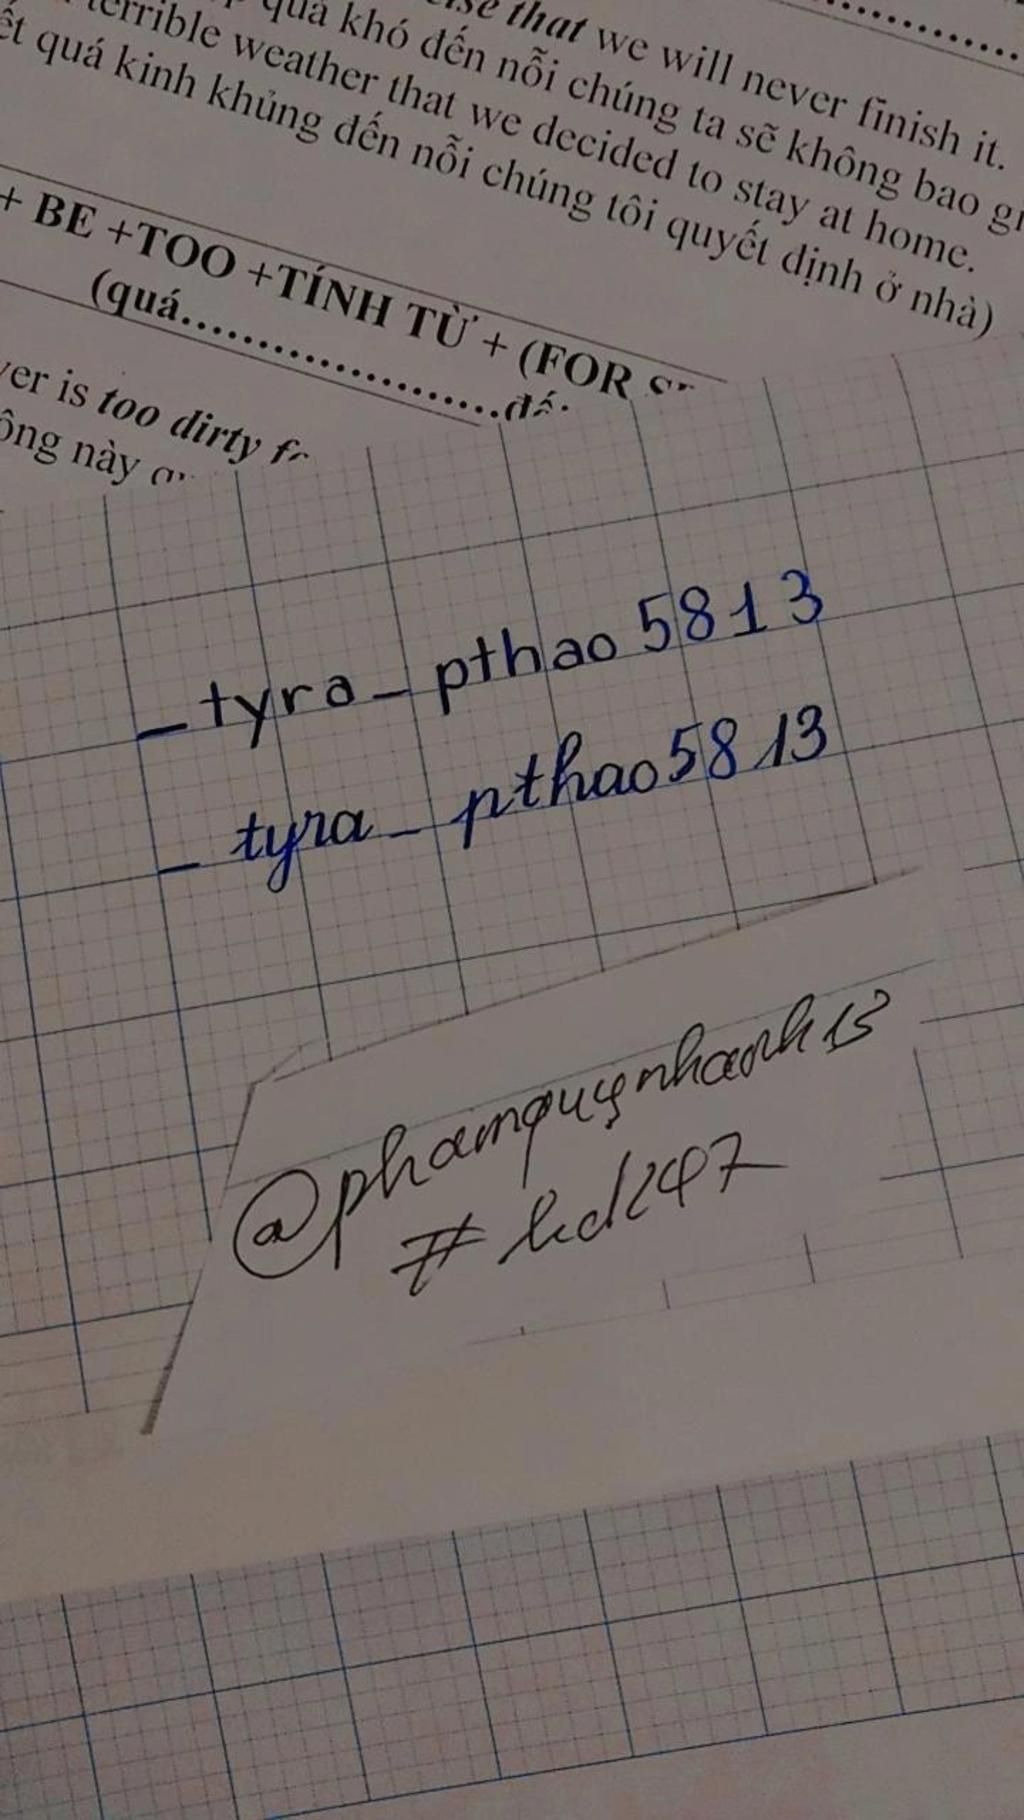 that we will never finish it.
quá khó đến nỗi chúng ta sẽ không bao
terrible weather that we decided to stay at home.
quá kinh khủng đến nỗi chúng tôi quyết định ở nhà)
+ BE +TOO +TÍNH TỪ + (FOR
(quá....................
is too dirty
này
_tyra_pthao5813
_tyra_pthao5813
@phamquynhanh13